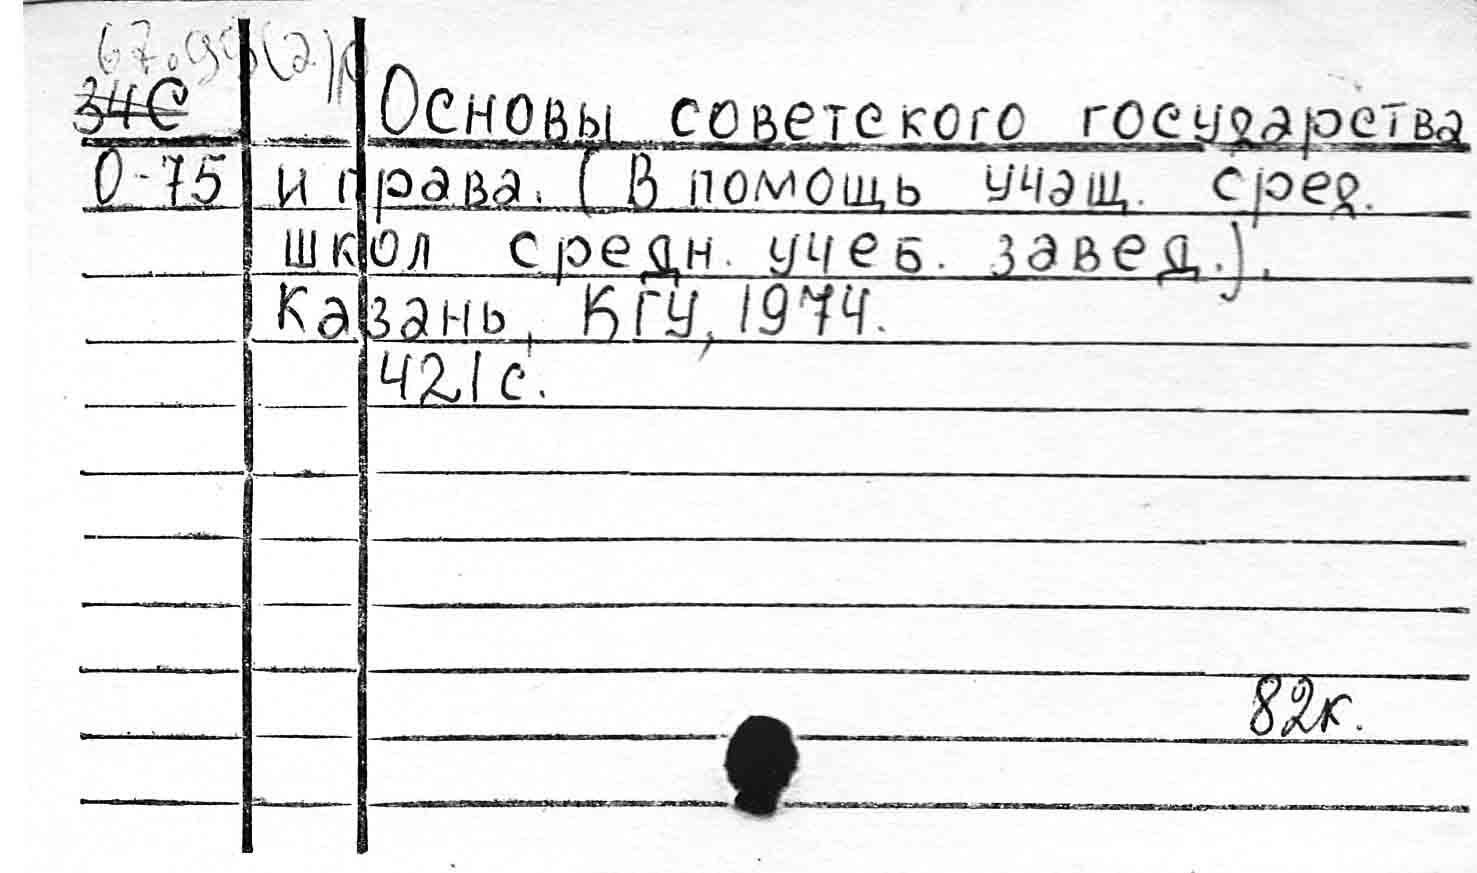 67.99(2)1
34С
О-75
Основы советского государства
и права. (В помощь учащ. сред.
школ средн. учеб. завед.).
Казань, КГУ, 1974.
421с.
82к.